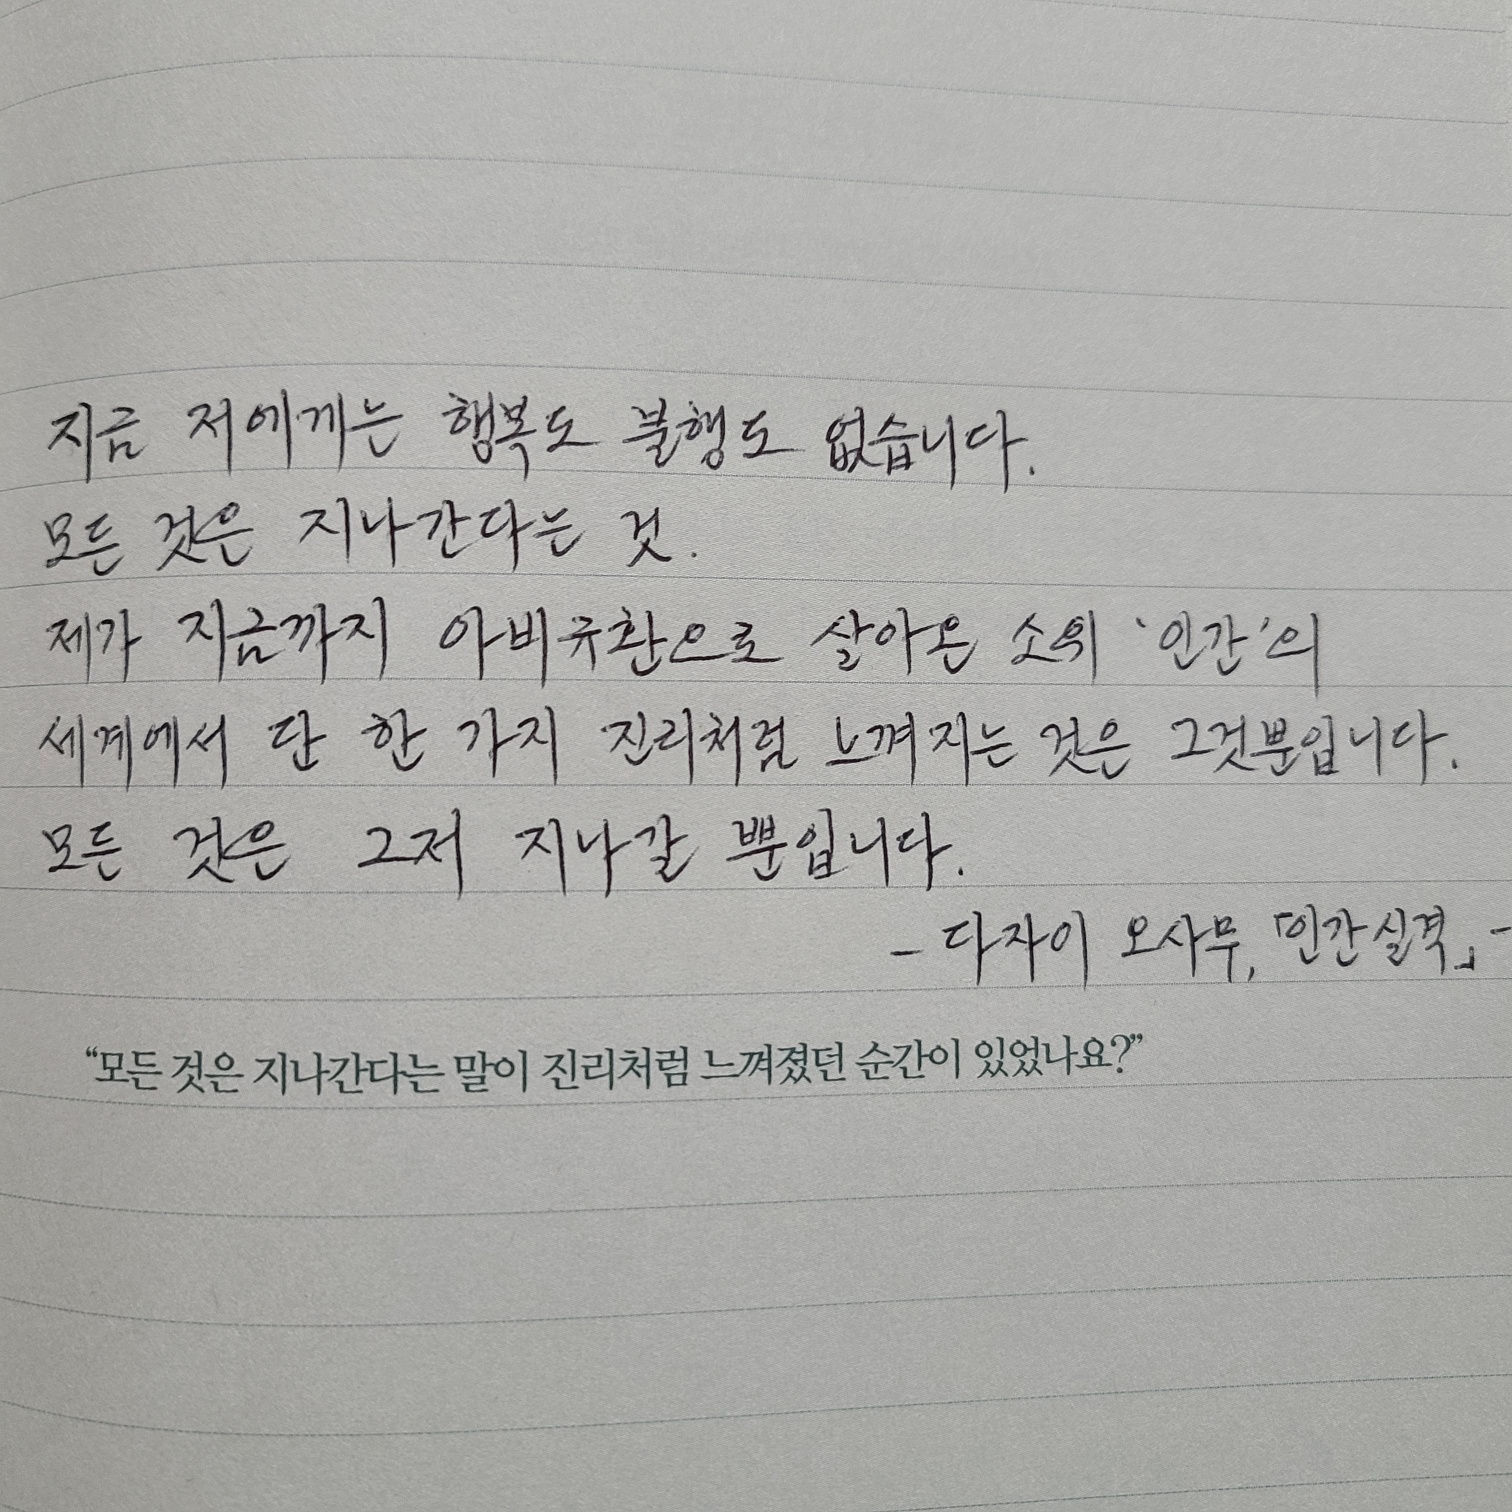 지금 저에게는 행복도 불행도 없습니다.
모든 것은 지나간다는 것.
제가 지금까지 아비규환으로 살아온 소위 '인간'의
세계에서 단 한 가지 진리처럼 느껴지는 것은 그것뿐입니다.
모든 것은 그저 지나갈 뿐입니다.
- 다자이 오사무, 「인간실격」 -
“모든 것은 지나간다는 말이 진리처럼 느껴졌던 순간이 있었나요?”